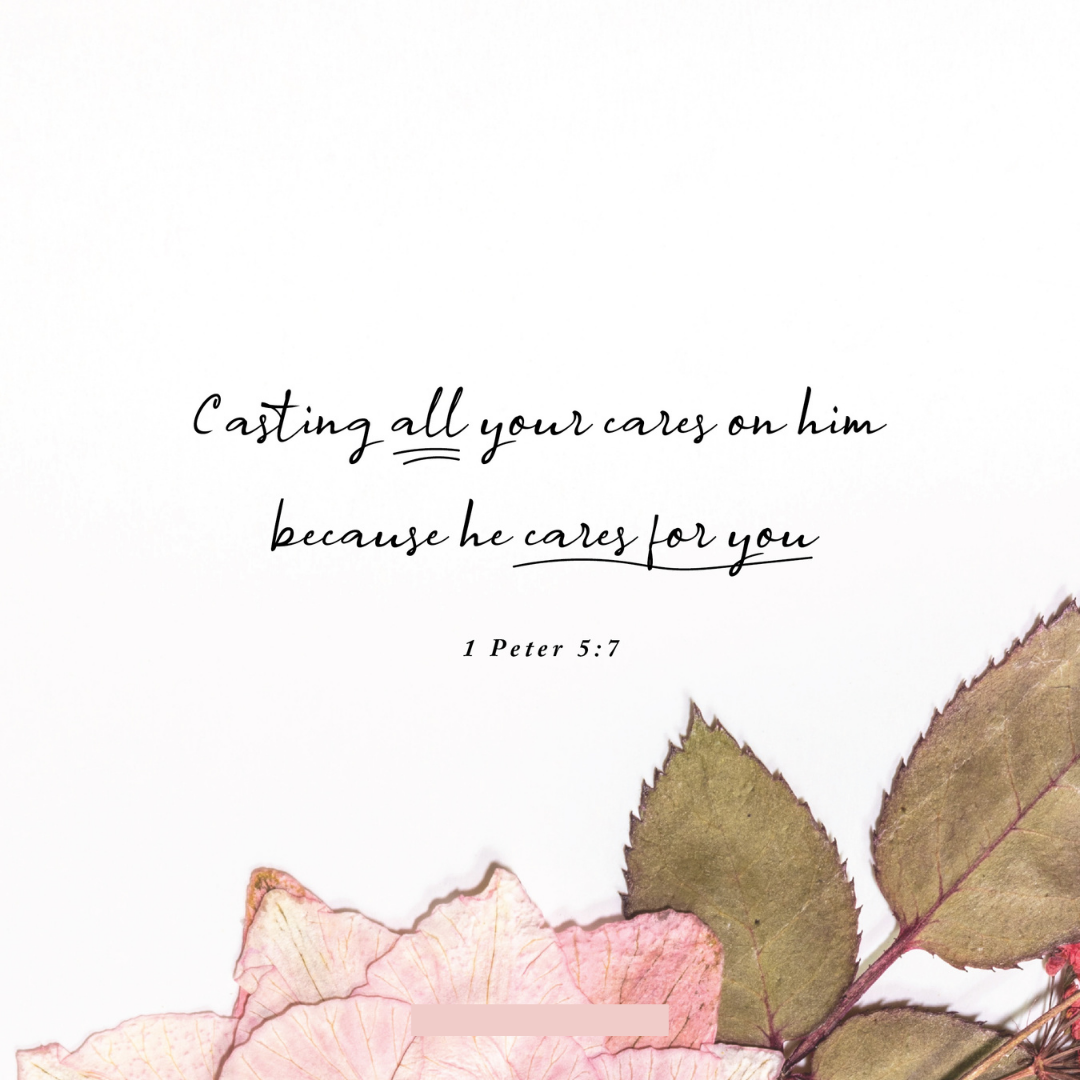 Casting all your cares on him
because he cares for you
1 Peter 5:7